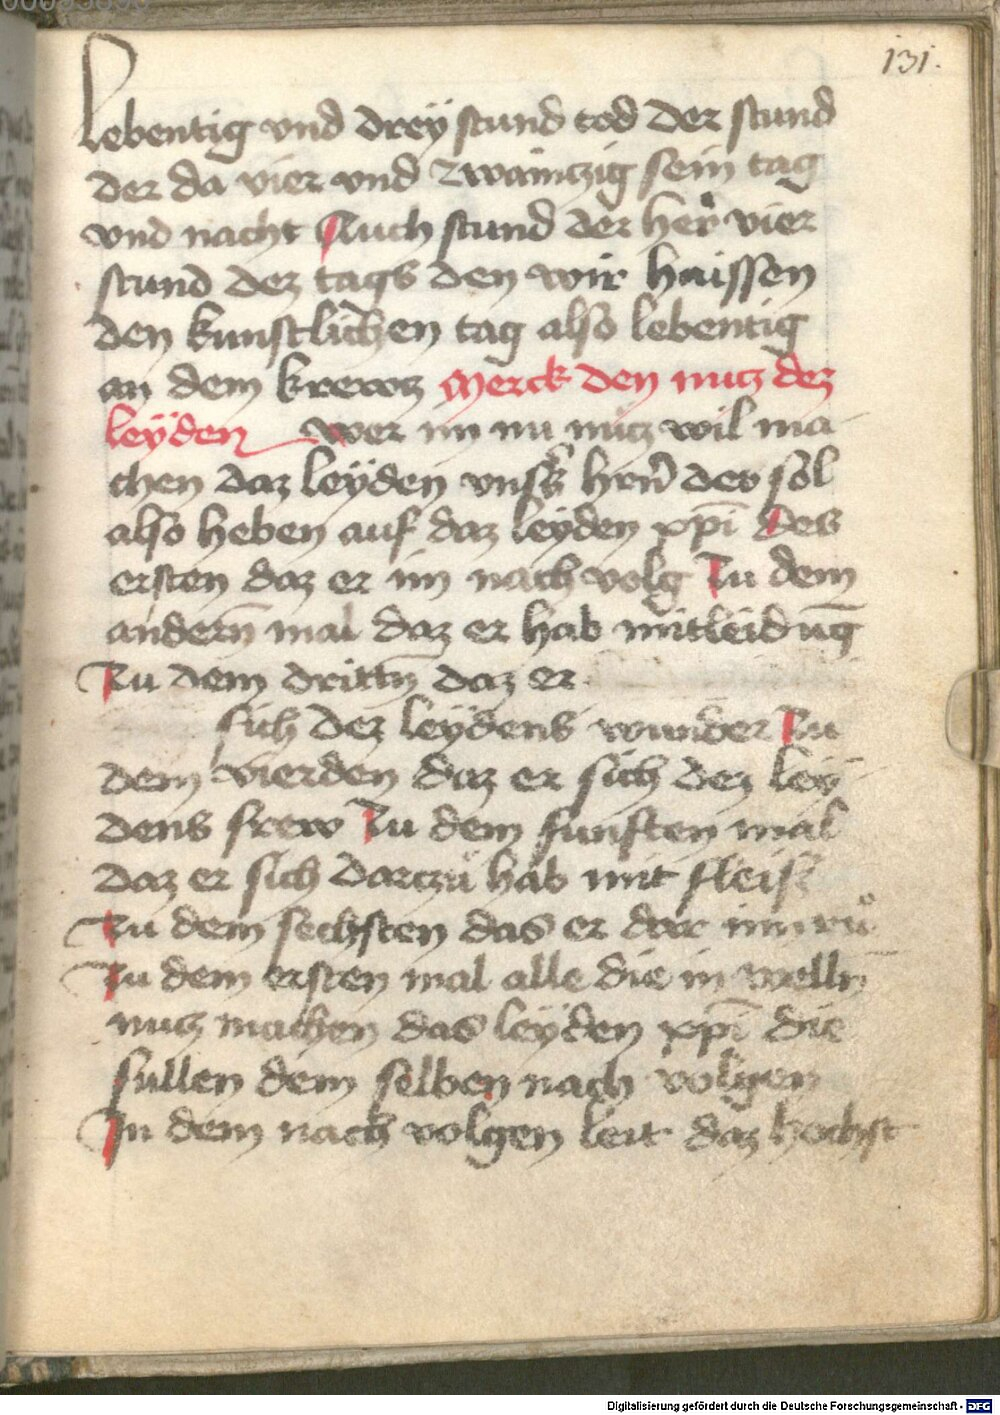 131.
Lebentig vnd dreÿ stund tod der stund
der da vier vnd zwainczig sein tag
vnd nacht Auch stund der herr vier
stund dez tags den wir haissen
den kunstlichen tag also lebentig
an dem krewtz Merck den nutz dez
leÿden wer im nu nutz wil ma
chen daz leÿden vnsers hrn̄ der sol
also heben auf daz leÿden xp̄i Des
ersten daz er im nach volg Zu dem
andern̄ mal daz er hab mitleidūg
Zu dem drittn̄ daz er
sich dez leÿdens wunder Zu
dem vierden daz er sich dez leÿ
dens frew Zu dem funften mal
daz er sich darczuͦ hab mit fleiß
Zu dem sechsten das er dar inn ruͦ
Zu dem ersten mal alle die in welln̄
nutz machen das leÿden xp̄i die
sullen dem selben nach volgen
In dem nach volgen leit daz hochst
Digitalisierung gefördert durch die Deutsche Forschungsgemeinschaft - DFG